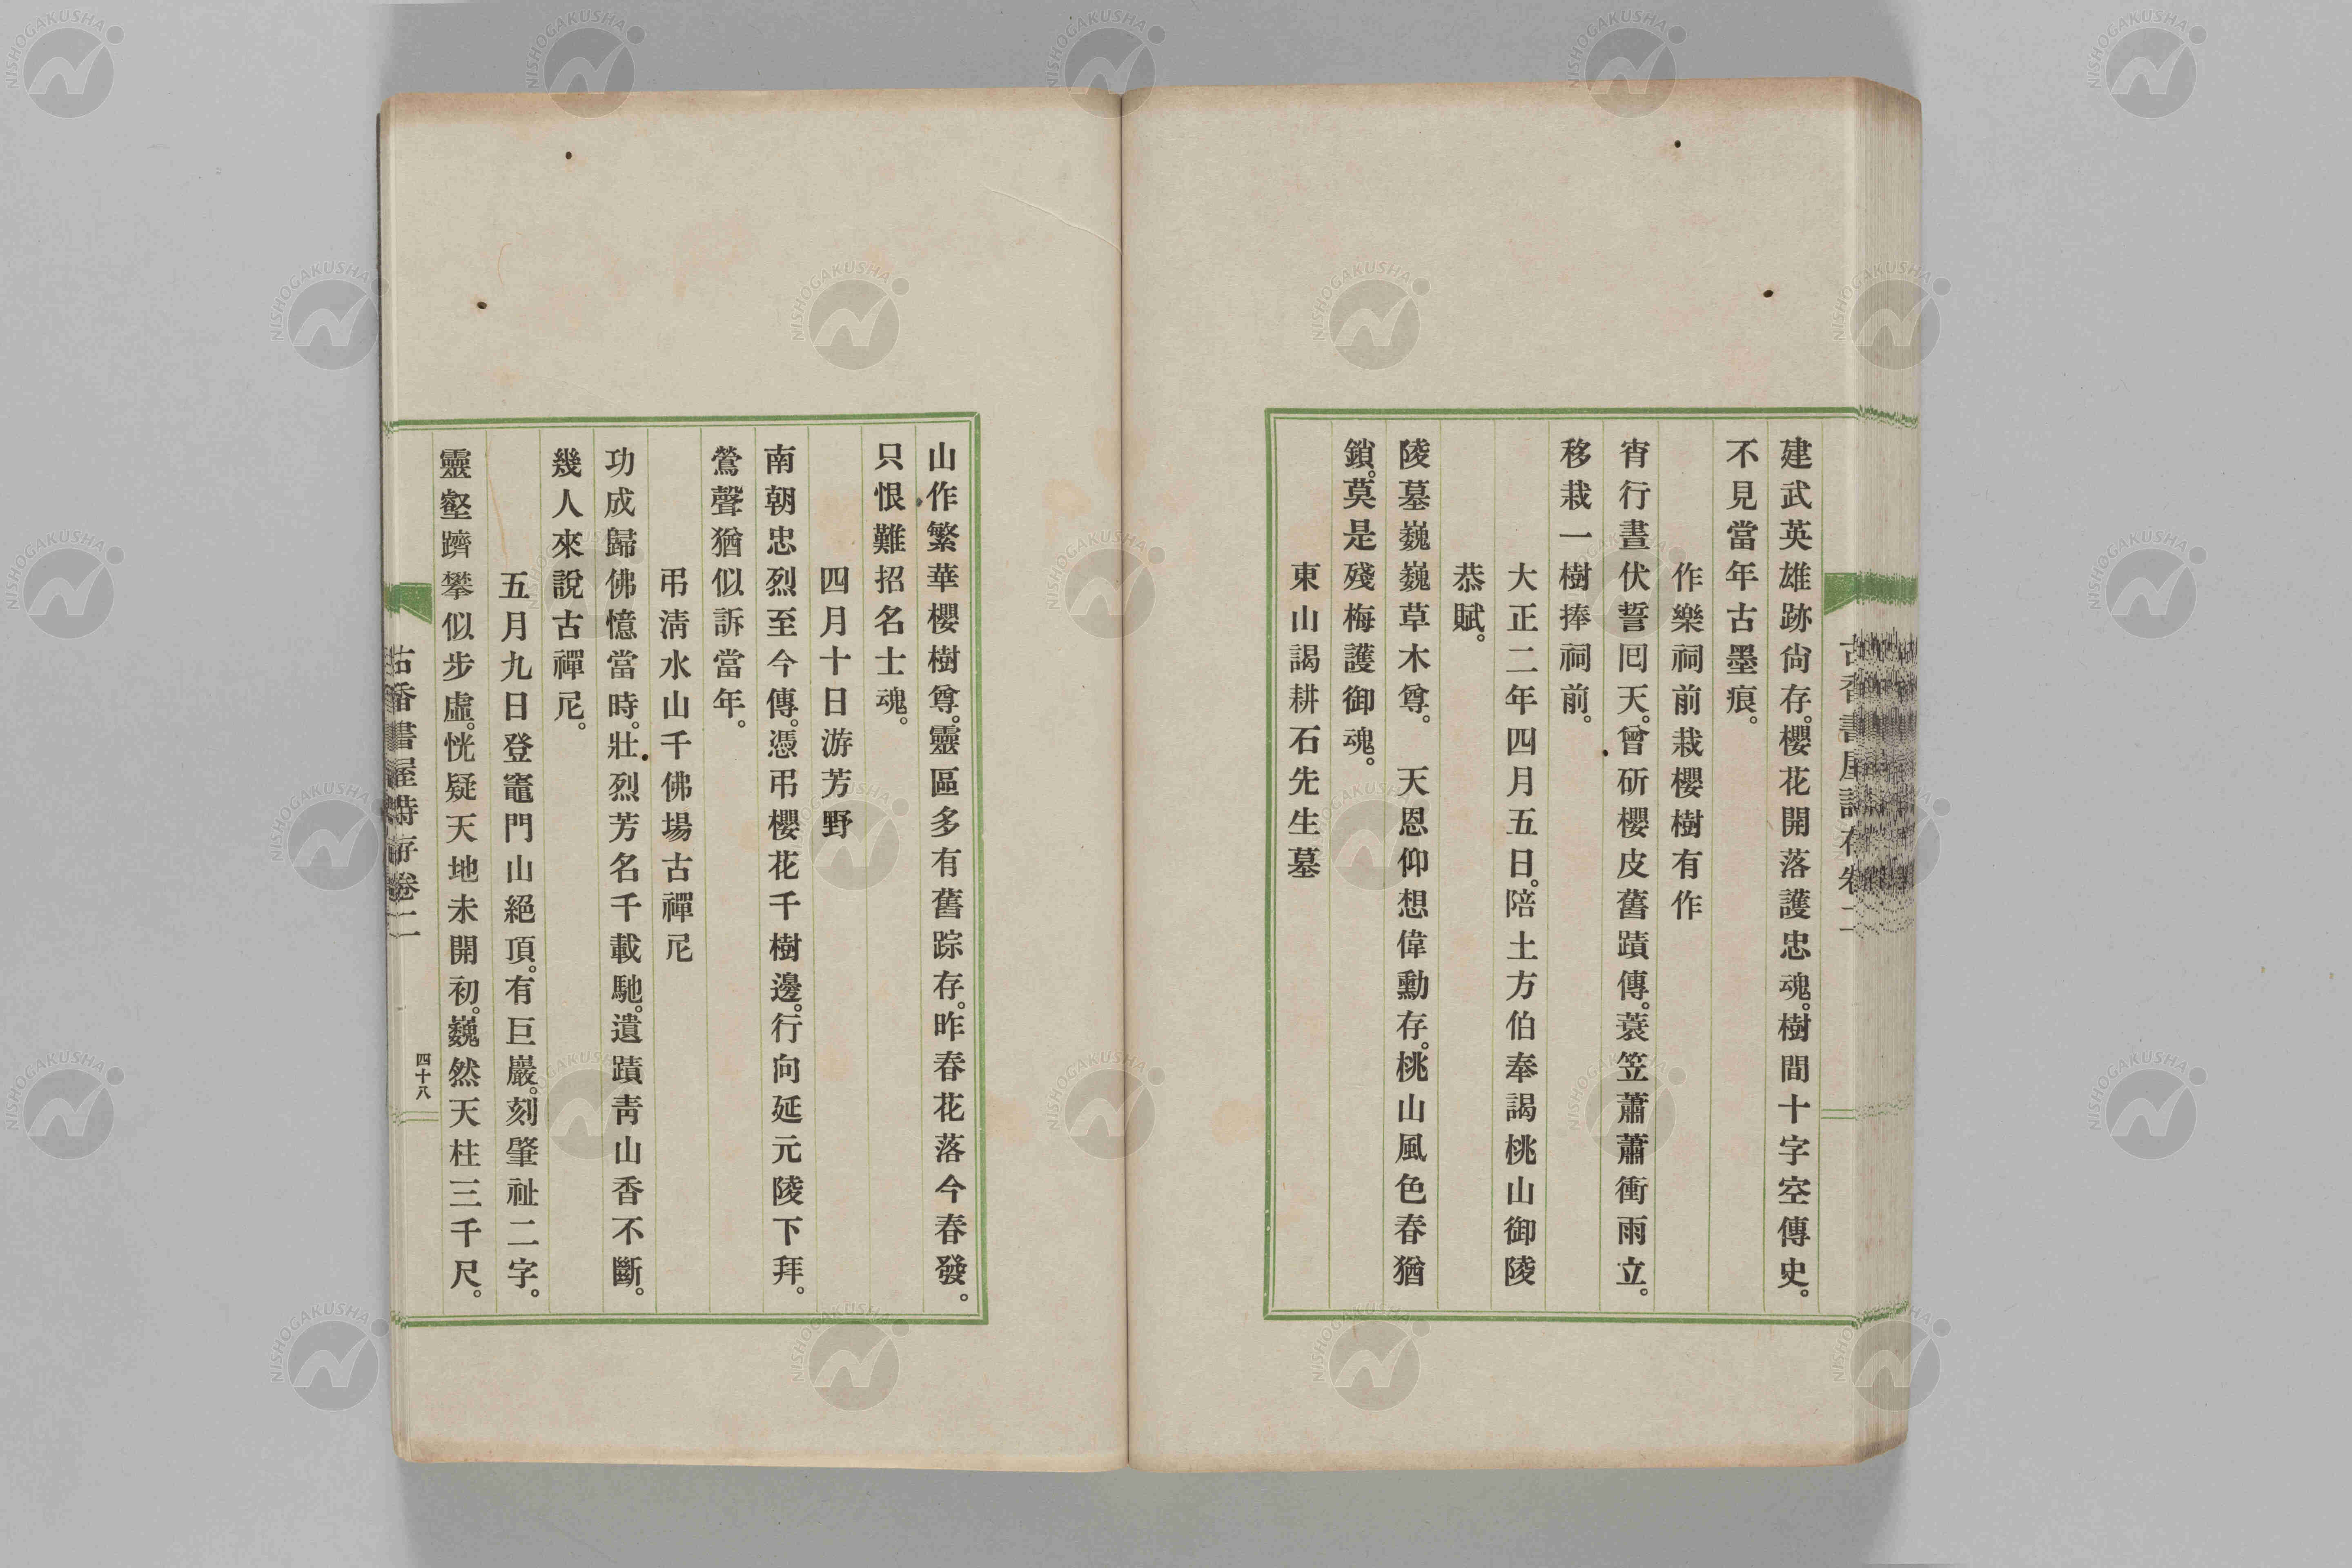 建武英雄跡尙存。櫻花開落護忠魂。樹間十字空傳史。
不見當年古墨痕。
作樂祠前栽櫻樹有作
宵行晝伏誓囘天。曾斫櫻皮舊蹟傳。蓑笠蕭蕭衝雨立。
移栽一樹捧祠前。
大正二年四月五日。陪土方伯奉謁桃山御陵
恭賦。
陵墓巍巍草木尊。 天恩仰想偉勳存。桃山風色春猶
鎖。莫是殘梅護御魂。
東山謁耕石先生墓
山作繁華櫻樹尊。靈區多有舊踪存。昨春花落今春發。
只恨難招名士魂。
四月十日游芳野
南朝忠烈至今傳。憑弔櫻花千樹邊。行向延元陵下拜。
鶯聲猶似訴當年。
弔淸水山千佛場古禪尼
功成歸佛憶當時。壯烈芳名千載馳。遺蹟靑山香不斷。
幾人來說古禪尼。
五月九日登竈門山絕頂。有巨巖。刻肇祉二字。
靈壑躋攀似步虛。恍疑天地未開初。巍然天柱三千尺。
古香書屋詩存卷二
四十八
NISHOGAKUSHA